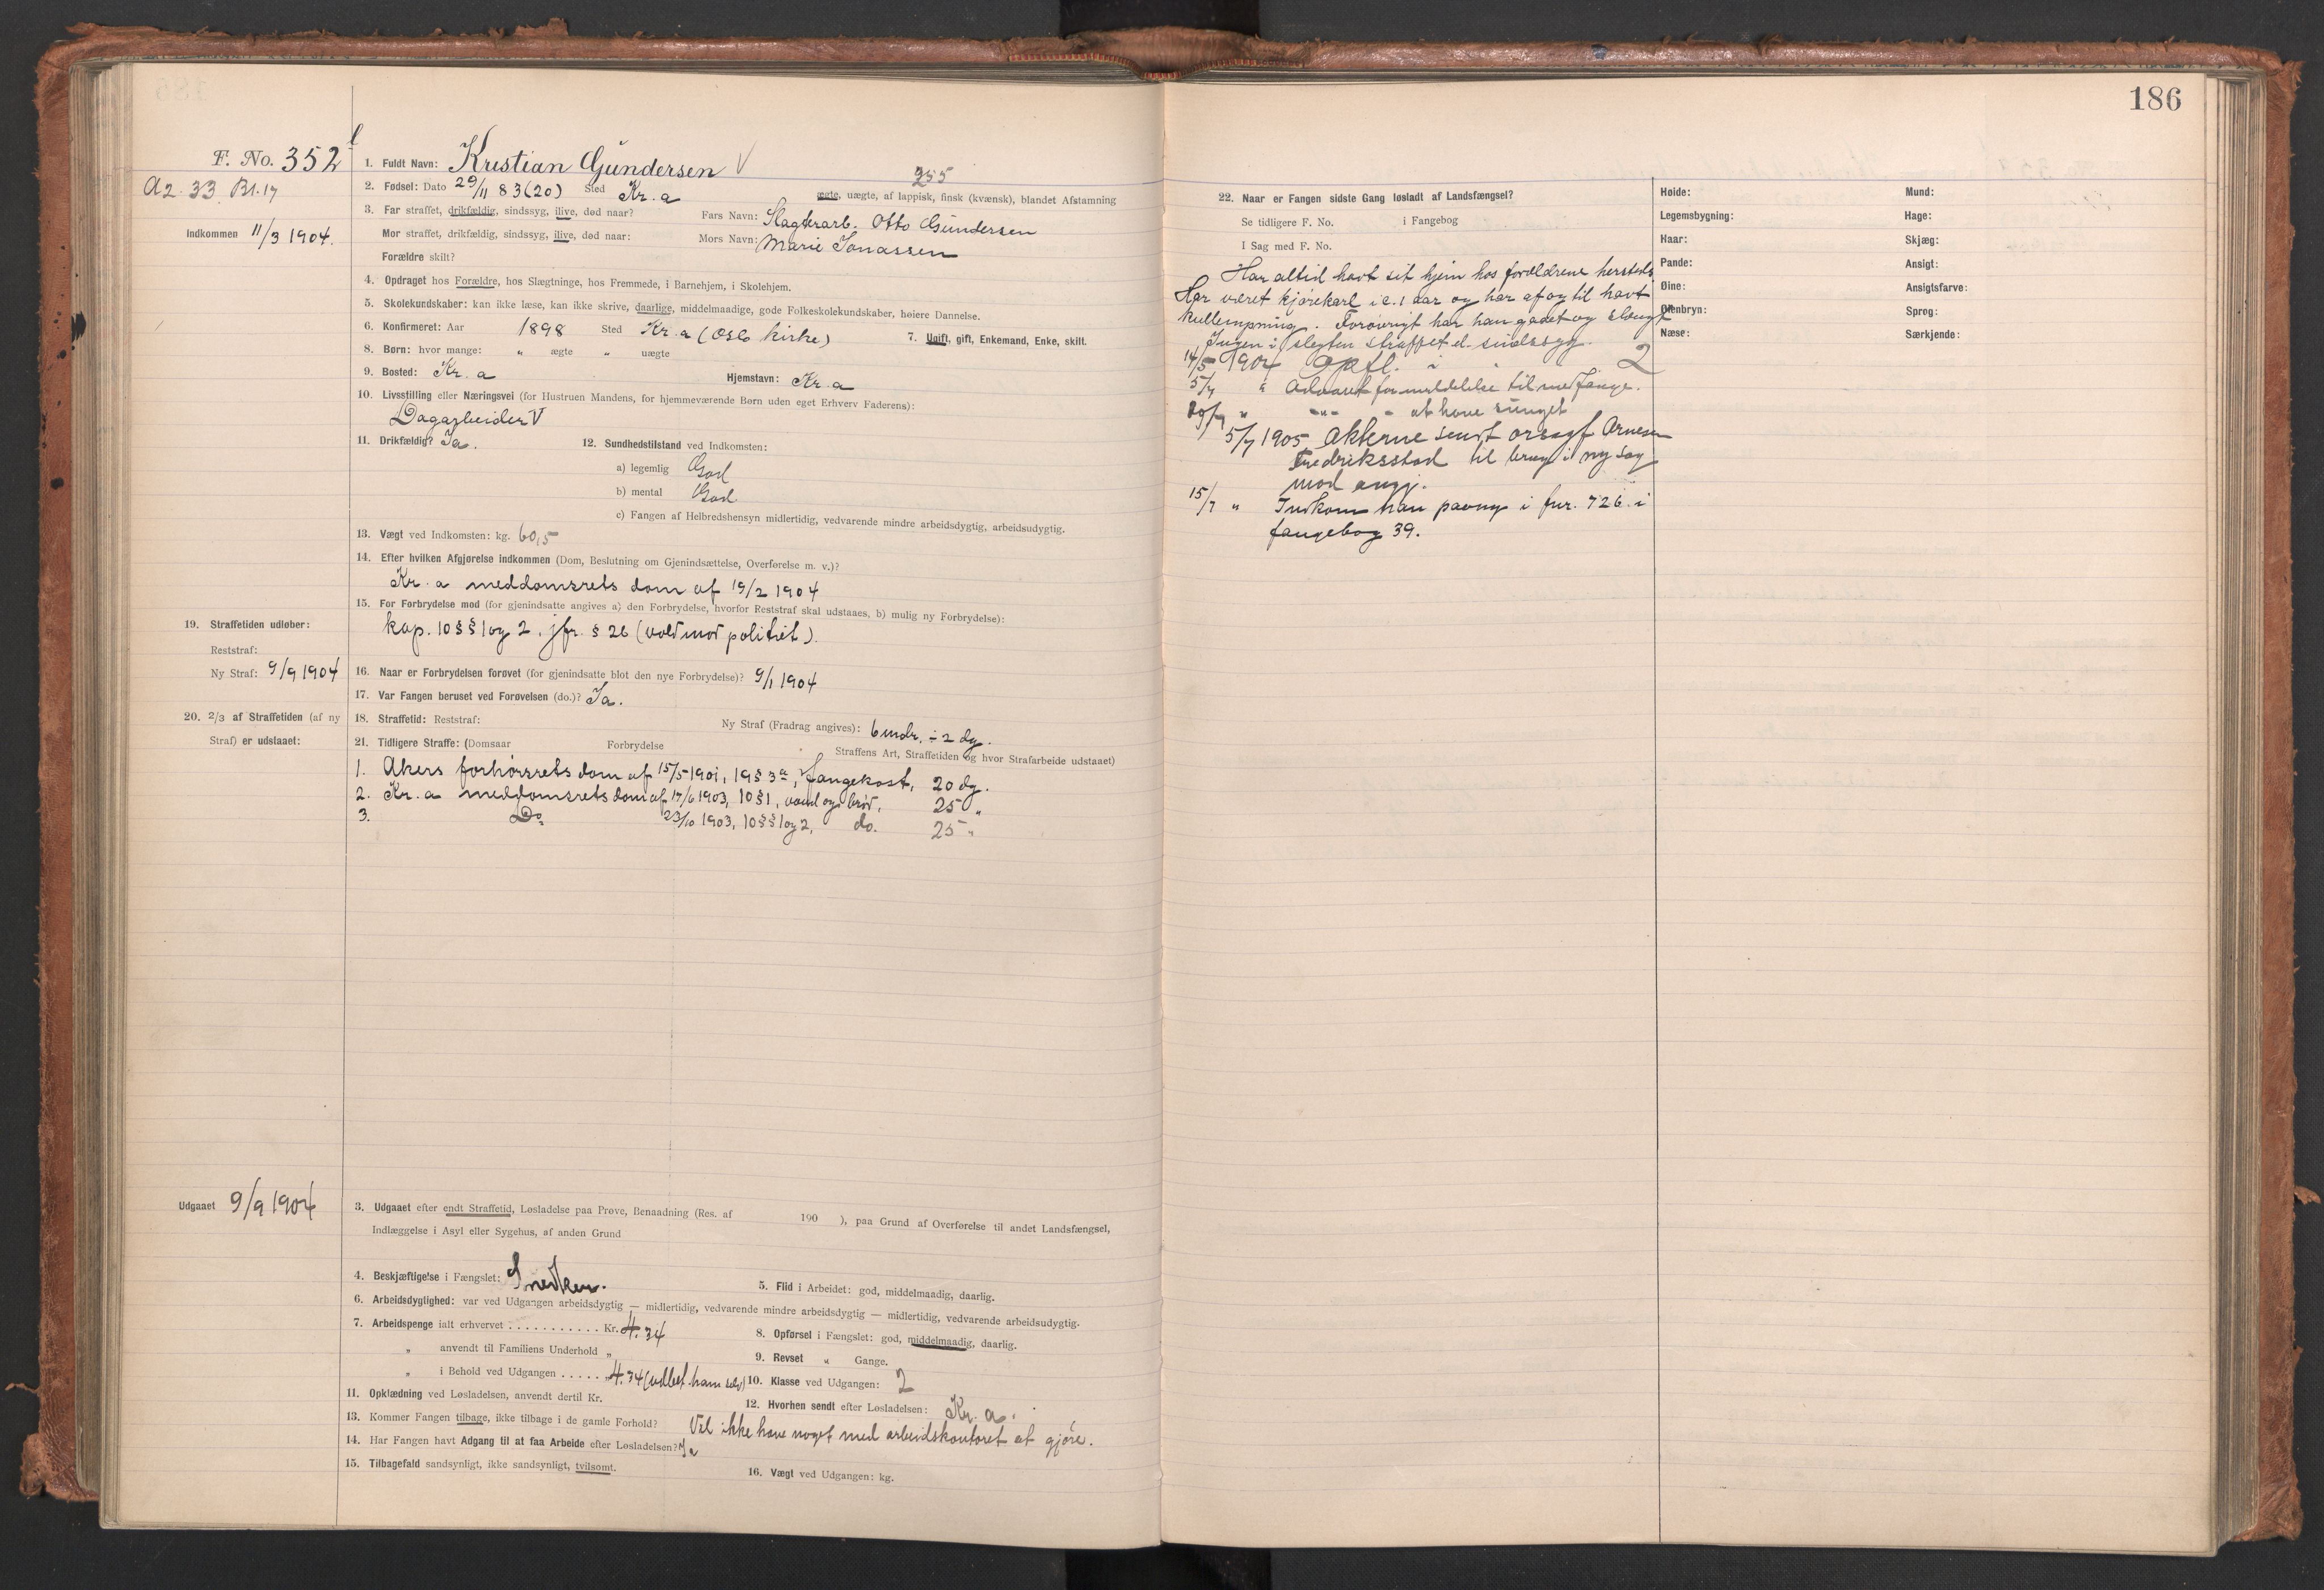 186
F. No. 352
A2. 33. Bl. 17
Indkommen 11/3 1904.
1. Fuldt Navn: Kristian Gundersen V
255
2. Fødsel: Dato 29/11 83 (20) Sted Kr.a ægte, uægte, af lappisk, finsk (kvænsk), blandet Afstamning
3. Far straffet, drikfældig, sindssyg, ilive, død naar? Fars Navn: Slagterarb. Otto Gundersen
Mor straffet, drikfældig, sindssyg, ilive, død naar: Mors Navn: Marie Jonassen
Forældre skilt?
4. Opdraget hos Forældre, hos Slægtninge, hos Fremmede, i Barnehjem, i Skolehjem.
5. Skolekundskaber: kan ikke læse, kan ikke skrive, daarlige, middelmaadige, gode Folkeskolekundskaber, høiere Dannelse.
6. Konfirmeret: Aar 1898 Sted Kr.a (Oslo kirke) 7. Ugift, gift, Enkemand, Enke, skilt.
8. Børn: hvor mange: " ægte " uægte
9. Bosted: Kr.a Hjemstavn: Kr.a
10. Livsstilling eller Næringsvei (for Hustruen Mandens, for hjemmeværende Børn uden eget Erhverv Faderens):
Dagarbeider V
11. Drikfældig? Ja. 12. Sundhedstilstand ved Indkomsten:
a) legemlig God
b) mental God
c) Fangen af Helbredshensyn midlertidig, vedvarende mindre arbeidsdygtig, arbeidsudygtig.
13. Vægt ved Indkomsten: kg. 60,5
14. Efter hvilken Afgjørelse indkommen (Dom, Beslutning om Gjenindsættelse, Overførelse m. v.)?
Kr.a meddomsrets dom af 19/2 1904
15. For Forbrydelse mod (for gjenindsatte angives a) den Forbrydelse, hvorfor Reststraf skal udstaaes, b) mulig ny Forbrydelse):
kap. 10 §§ 1 og 2, jfr. § 26 (vold mod politiet).
19. Straffetiden udløber:
Reststraf:
Ny Straf: 9/9 1904
16. Naar er Forbrydelsen forøvet (for gjenindsatte blot den nye Forbrydelse)? 9/1 1904
17. Var Fangen beruset ved Forøvelsen (do.)? Ja.
20. 2/3 af Straffetiden (af ny
Straf) er udstaaet:
18. Straffetid: Reststraf: Ny Straf (Fradrag angives): 6 mdr. ÷ 2 dg.
21. Tidligere Straffe: (Domsaar Forbrydelse Straffens Art, Straffetiden og hvor Strafarbeide udstaaet)
1. Akers forhørsrets dom af 15/5 1901, 19 § 3 a, fangekost, 20 dg.
2. Kr.a meddomsrets dom af 17/6 1903, 10 § 1, vand og brød, 25 "
3. Do 23/10 1903, 10 §§ 1 og 2, do. 25 "
Udgaaet 9/9 1904
3. Udgaaet efter endt Straffetid, Løsladelse paa Prøve, Benaadning (Res. af 190 ), paa Grund af Overførelse til andet Landsfængsel,
Indlæggelse i Asyl eller Sygehus, af anden Grund
4. Beskjæftigelse i Fængslet: Snedker. 5. Flid i Arbeidet: god, middelmaadig, daarlig.
6. Arbeidsdygtighed: var ved Udgangen arbeidsdygtig — midlertidig, vedvarende mindre arbeidsdygtig — midlertidig, vedvarende arbeidsudygtig.
7. Arbeidspenge ialt erhvervet . . . . . . . . . . . Kr. 4.34 8. Opførsel i Fængslet: god, middelmaadig, daarlig.
" anvendt til Familiens Underhold " 9. Revset " Gange.
" i Behold ved Udgangen . . . . . 4.34 (udbet. ham selv) 10. Klasse ved Udgangen: 2
11. Opklædning ved Løsladelsen, anvendt dertil Kr. 12. Hvorhen sendt efter Løsladelsen: Kr.a.
13. Kommer Fangen tilbage, ikke tilbage i de gamle Forhold? Vil ikke have noget med arbeidskontoret at gjøre.
14. Har Fangen havt Adgang til at faa Arbeide efter Løsladelsen? Ja
15. Tilbagefald sandsynligt, ikke sandsynligt, tvilsomt. 16. Vægt ved Udgangen: kg.
22. Naar er Fangen sidste Gang løsladt af Landsfængsel?
Se tidligere F. No. i Fangebog
I Sag med F. No.
Har altid havt sit hjem hos forældrene hersteds
Har været kjørekarl i c. 1 aar og har af og til havt
kullempning. Forøvrigt har han gaaet og slængt
Ingen i slegten straffet el. sindssyg.
14/5 1904 Opfl. i 2
5/7 " Advaret for meddelelse til medfange.
29/7 " -"- - at have sunget
5/7 1905 Akterne sendt orsagf Arnesen
Fredriksstad til brug i ny sag
mod angj.
15/7 " Indkom han paany i fnr. 726 i
fangebog 39.
Høide: Mund:
Legemsbygning: Hage:
Haar: Skjæg:
Pande: Ansigt:
Øine: Ansigtsfarve:
Øienbryn: Sprog:
Næse: Særkjende: